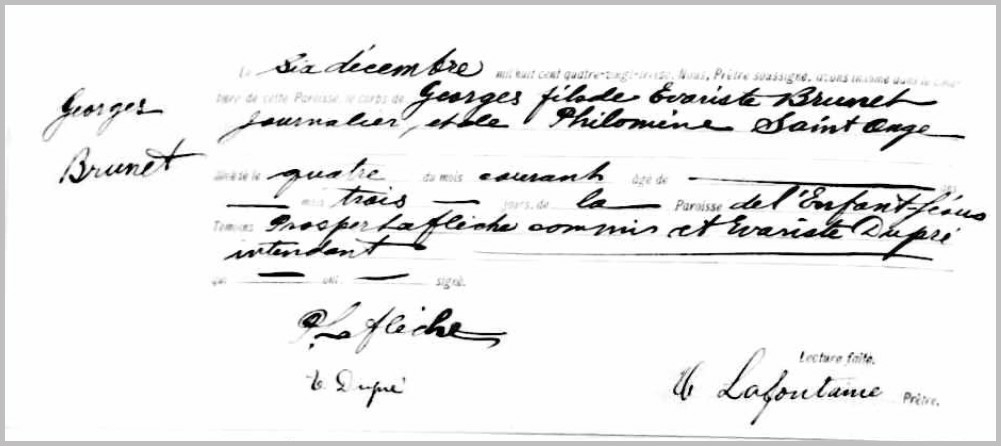 Georges
Brunet
Le six décembre mil huit cent quatre-vingt-treize. Nous, Prêtre soussigné, avons inhumé dans le Cime-
tière de cette Paroisse, le corps de Georges fils de Evariste Brunet
journalier, et de Philomène Saint Onge
décédé le quatre du mois courant âgé de — ans
— mois trois — jours, de la — Paroisse de l'Enfant-Jésus
Témoins Prosper Laflèche commis et Evariste Dupré
intendant
qui — ont — signé.
P. Laflèche
E. Dupré
Lecture faite.
Lafontaine Prêtre.